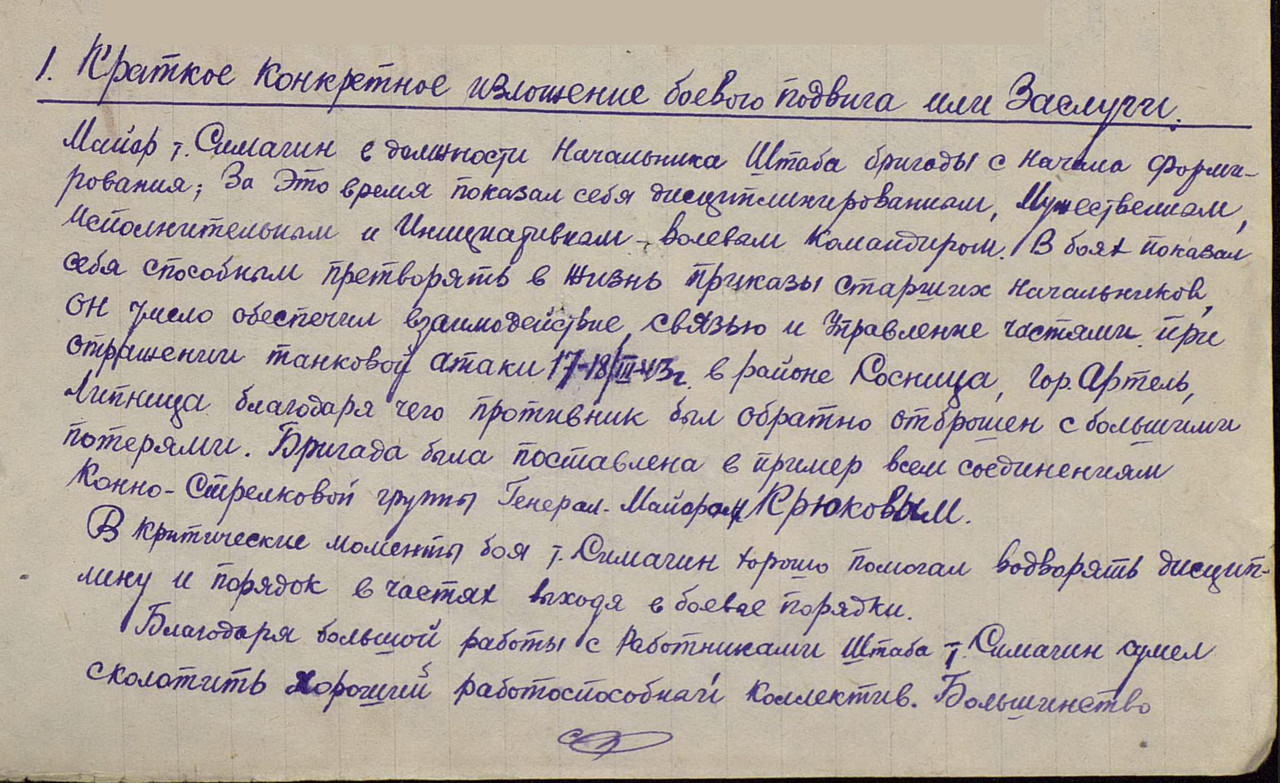 1. Краткое конкретное изложение боевого подвига или Заслуги.
Майор т. Симагин в должности Начальника Штаба бригады с начала форми-
рования; За Это время показал себя дисциплинированным, Мужественным,
Исполнительным и Инициативным - волевым командиром. В боях показал
себя способным претворять в жизнь приказы старших начальников,
он умело обеспечил взаимодействие связью и Управление частями при
отражении танковой атаки 17-18/III-43г. в районе Сосница, Гор. Артель,
Липница благодаря чего противник был обратно отброшен с большими
потерями. Бригада была поставлена в пример всем соединениям
Конно-Стрелковой группы Генерал-Майором Крюковым.
В критические моменты боя т. Симагин хорошо помогал водворять дисцип-
лину и порядок в частях выходя в боевые порядки.
Благодаря большой работы с Работниками Штаба т. Симагин сумел
сколотить хороший работоспособный коллектив. Большинство